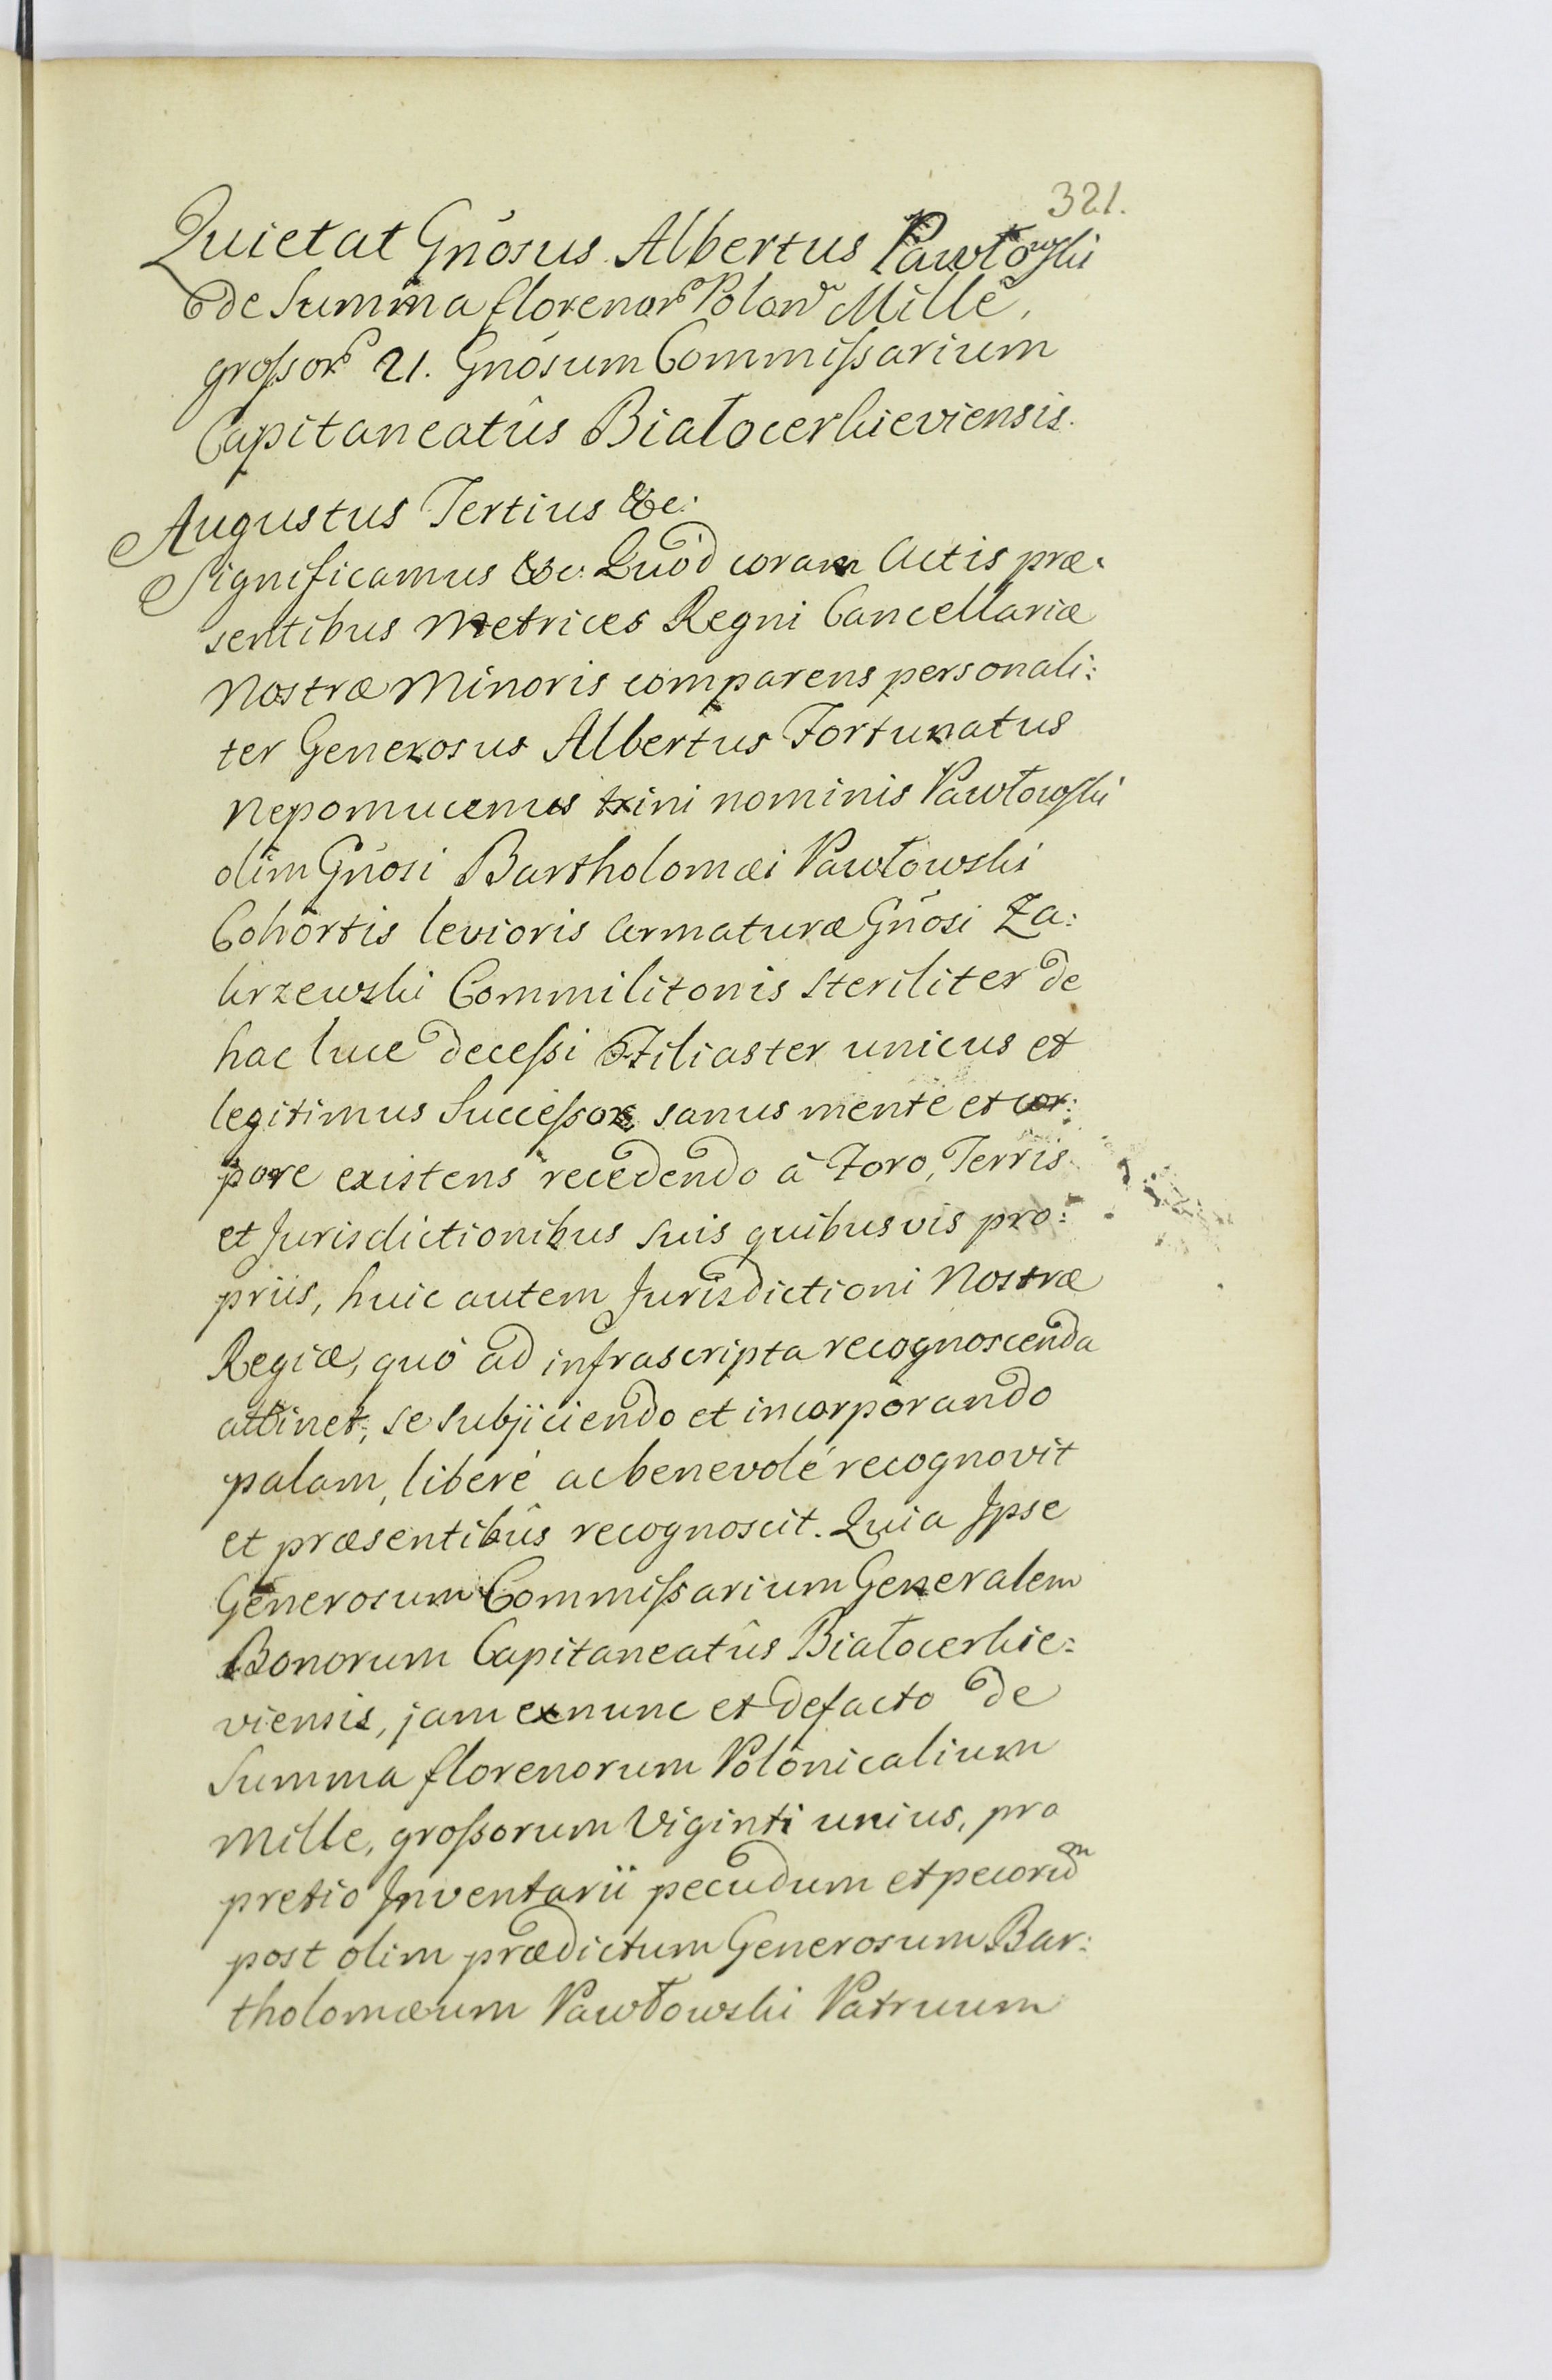 321.
Quietat Gnosus Albertus Pawłowski
de Summa florenor Polon Mille,
grossor 21. Gnosum Commissarium
Capitaneatûs Białocerkieviensis.
Augustus Tertius &c:
Significamus &c: Quòd coram Actis præ:
sentibus Metrices Regni Cancellariæ
Nostræ Minoris comparens personali:
ter Generosus Albertus Fortunatus
Nepomucenus trini nominis Pawłowski
olim Gnosi Bartholomæi Pawłowski
Cohortis levioris Armaturæ Gnosi Za:
krzewski Commilitonis steriliter de
hac luce decessi Filiaster unicus et
legitimus Successor, sanus mente et cor:
pore existens recedendo à Foro, Terris
et Jurisdictionibus suis quibusvis pro:
priis, huic autem Jurisdictioni Nostræ
Regiæ, quò ad infrascripta recognoscenda
attinet, se subjiciendo et incorporando
palam, liberé ac benevolé recognovit
et præsentibûs recognoscit. Quia Ipse
Generosum Commissarium Generalem
Bonorum Capitaneatûs Białocerkie:
viensis, jam ex nunc et defacto de
Summa florenorum Polonicalium
Mille, grossorum Viginti unius, pro
pretio Inventarii pecudum et pecorum
post olim prædictum Generosum Bar:
tholomæum Pawłowski Patruum